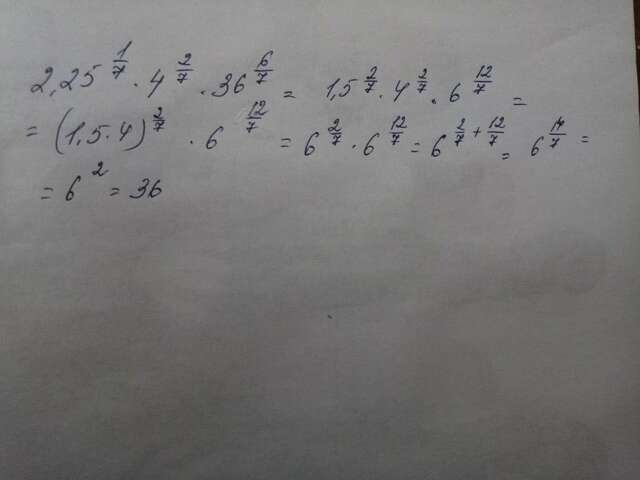 2,25^{\frac{1}{7}} · 4^{\frac{2}{7}} · 36^{\frac{6}{7}} = 1,5^{\frac{2}{7}} · 4^{\frac{2}{7}} · 6^{\frac{12}{7}} =
= (1,5 · 4)^{\frac{2}{7}} · 6^{\frac{12}{7}} = 6^{\frac{2}{7}} · 6^{\frac{12}{7}} = 6^{\frac{2}{7} + \frac{12}{7}} = 6^{\frac{14}{7}} =
= 6^2 = 36